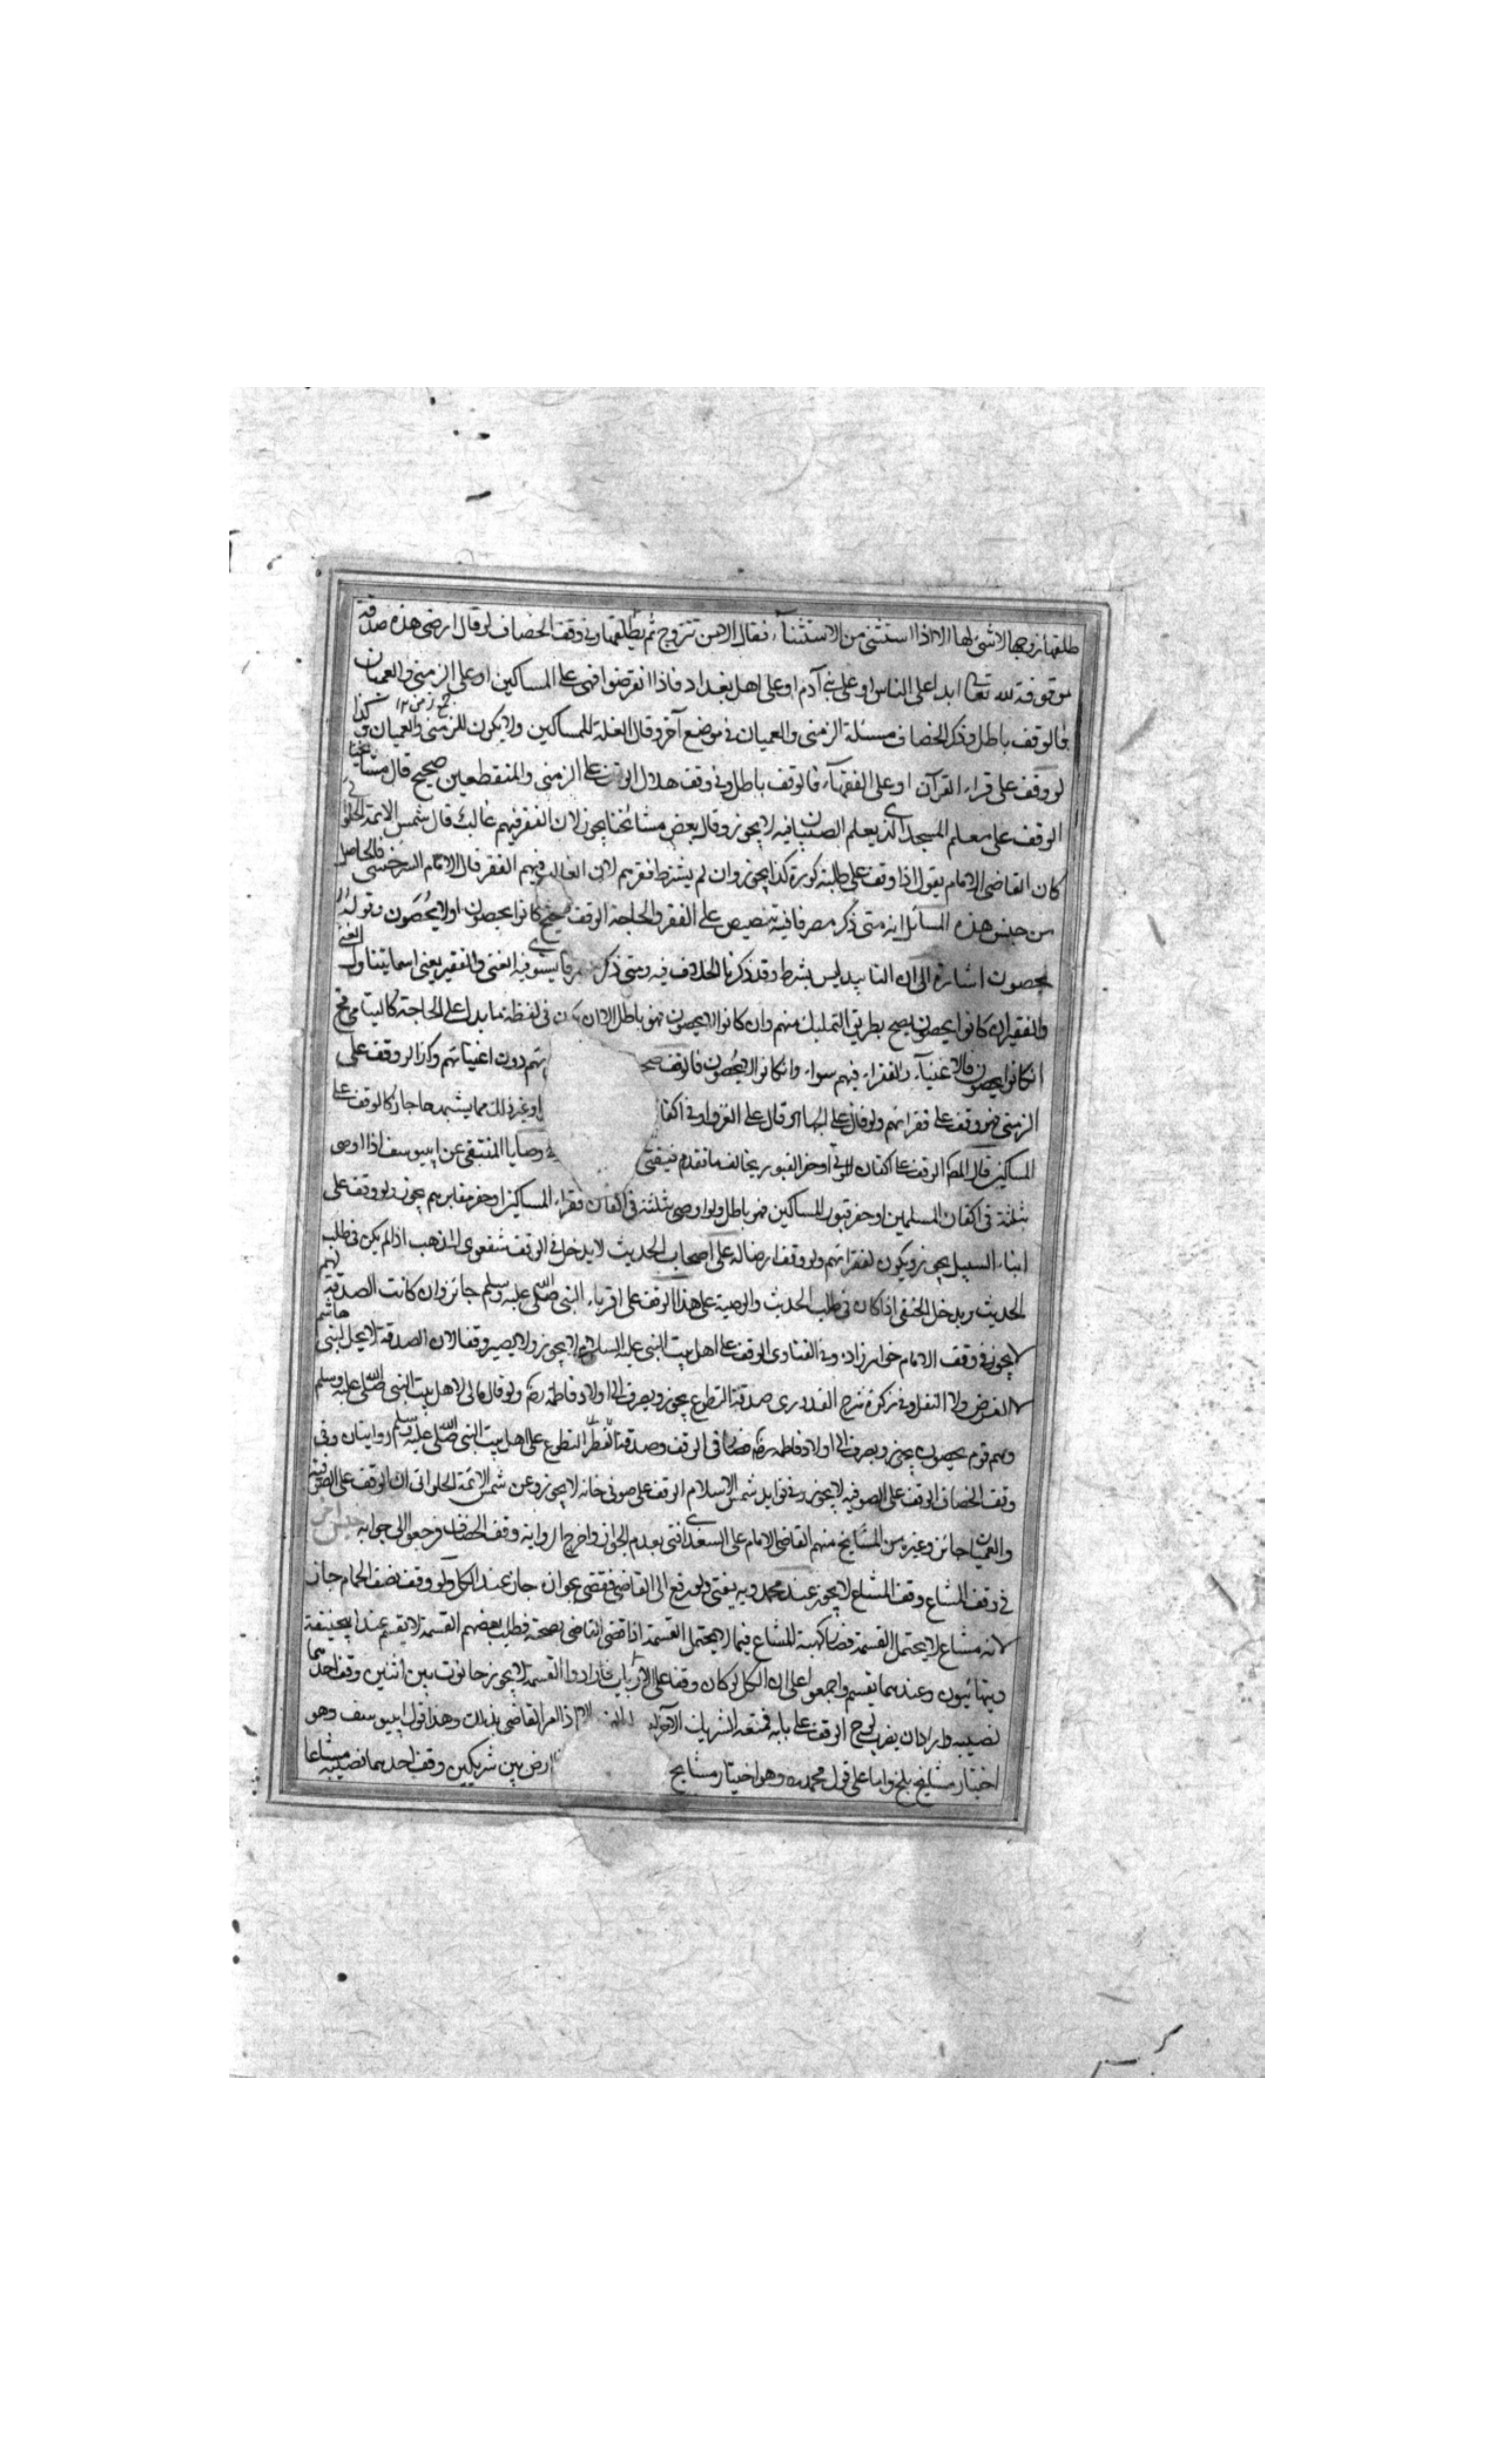 طلقها زوجها لا شئ لها الا اذا استثنى من الاستثناء فقال الا من تتزوج ثم يطلقها وفى وقف الخصاف لو قال ارضى هذه صدقة
موقوفة لله تعالى ابدا على الناس او على بنى آدم او على اهل بغداد فاذا انقرضوا فهى على المساكين او على الزمنى والعميان
فالوقف باطل وذكر الخصاف مسئلة الزمنى والعميان فى موضع آخر وقال الغلة للمساكين ولا يكون للزمنى والعميان وكذا
لو وقف على قراء القرآن او على الفقهاء فالوقف باطل وفى وقف هلال الوقف على الزمنى والمنقطعين صحيح قال مشائخنا
الوقف على معلم المسجد الذى يعلم الصبيان فيه لا يجوز وقال بعض مشائخنا يجوز لان الفقر فيهم غالب قال شمس الائمة الحلوانى
كان القاضى الامام يقول اذا وقف على طلبة كورة كذا يجوز وان لم يشترط فقرهم لان الغالب فيهم الفقر قال الامام السرخسى فالحاصل
من جنس هذه المسائل انه متى ذكر مصرفا فيه تنصيص على الفقر والحاجة الوقف صحيح كانوا يحصون او لا يحصون وقوله
يحصون اشارة الى ان التابيد ليس بشرط وقد ذكرنا الخلاف فيه ومتى ذكر مصرفا يستوى فيه الغنى والفقير يعنى اسما يتناول الغنى
والفقير ان كانوا يحصون يصح بطريق التمليك منهم وان كانوا لا يحصون فهو باطل الا ان يكون فى لفظه ما يدل على الحاجة كاليتامى فح
ان كانوا يحصون فالاغنياء والفقراء فيهم سواء وان كانوا لا يحصون فالوقف صح يهم دون اغنيائهم وكذا لو وقف على
الزمنى فهو وقف على فقرائهم ولو قال على الجهاد او قال على الغزو او فى اكفا او غير ذلك مما يشبهه جاز كالوقف على
المساكين قال الوقف على اكفان الموتى او حفر القبور يخالف ما تقدم فيفتى فى وصايا المنتقى عن ابى يوسف اذا اوصى
بثلثه فى اكفان المسلمين او حفر قبور المسلمين فهو باطل ولو اوصى بثلثه فى اكفان فقراء المساكين او حفر مقابرهم يجوز ولو وقف على
ابناء السبيل يجوز ويكون لفقرائهم ولو وقف ارضا له على اصحاب الحديث لا يدخل فى الوقف شفعوى المذهب اذا لم يكن فى طلب
الحديث ويدخل الحنفى اذا كان فى طلب الحديث والوصية على هذا الوقف على اقرباء النبى صلى الله عليه وسلم جائز وان كانت الصدقة لهم
لا يجوز فى وقف الامام خواهرزاده وفى الفتاوى الوقف على اهل بيت النبى عليه السلام لا يجوز ولا يصير وقفا لان الصدقة لا يحل لبنى هاشم
لا الفرض ولا النفل وفى شرح القدورى صدقة التطوع يجوز ويصرف الى اولاد فاطمة رضه ولو قال مالى لاهل بيت النبى صلى الله عليه وسلم
وهم قوم يحصون يجوز ويصرف الى اولاد فاطمة رضه فصار فى الوقف وصدقة التطوع على اهل بيت النبى صلى الله عليه وسلم روايتان وفى
وقف الخصاف الوقف على الصوفية لا يجوز وفى فوايد شمس الاسلام الوقف على صوفى خانه لا يجوز وعن شمس الائمة الحلوانى ان الوقف على الصوفية
والعميان جائز وغيره من المشايخ منهم القاضى الامام على السغدى افتى بعدم الجواز واخرج الرواية وقف الخصاف فرجعوا الى جوابه جنس آخر
فى وقف المشاع وقف المشاع لا يجوز عند محمد وبه يفتى ولو رفع الى القاضى فقضى بجوازه جاز عند الكل ولو وقف نصف الحمام جاز
لانه مشاع لا يحتمل القسمة فصار كهبة المشاع فيما لا يحتمل القسمة اذا قضى القاضى بصحته فطلب بعضهم القسمة لا يقسم عند ابيحنيفة
ويتهائيون وعندهما يقسم واجمعوا على ان الكل لو كان وقفا على الارباب فارادوا القسمة لا يجوز حانوت بين اثنين وقف احدهما
نصيبه واراد ان يضرب لوح الوقف على بابه فمنعه الشريك الآخر القاضى بذلك وهذا قول ابى يوسف وهو
اختيار مشايخ بلخ واما على قول محمد وهو اختيار مشايخ ارض بين شريكين وقف احدهما نصيبه مشاعا